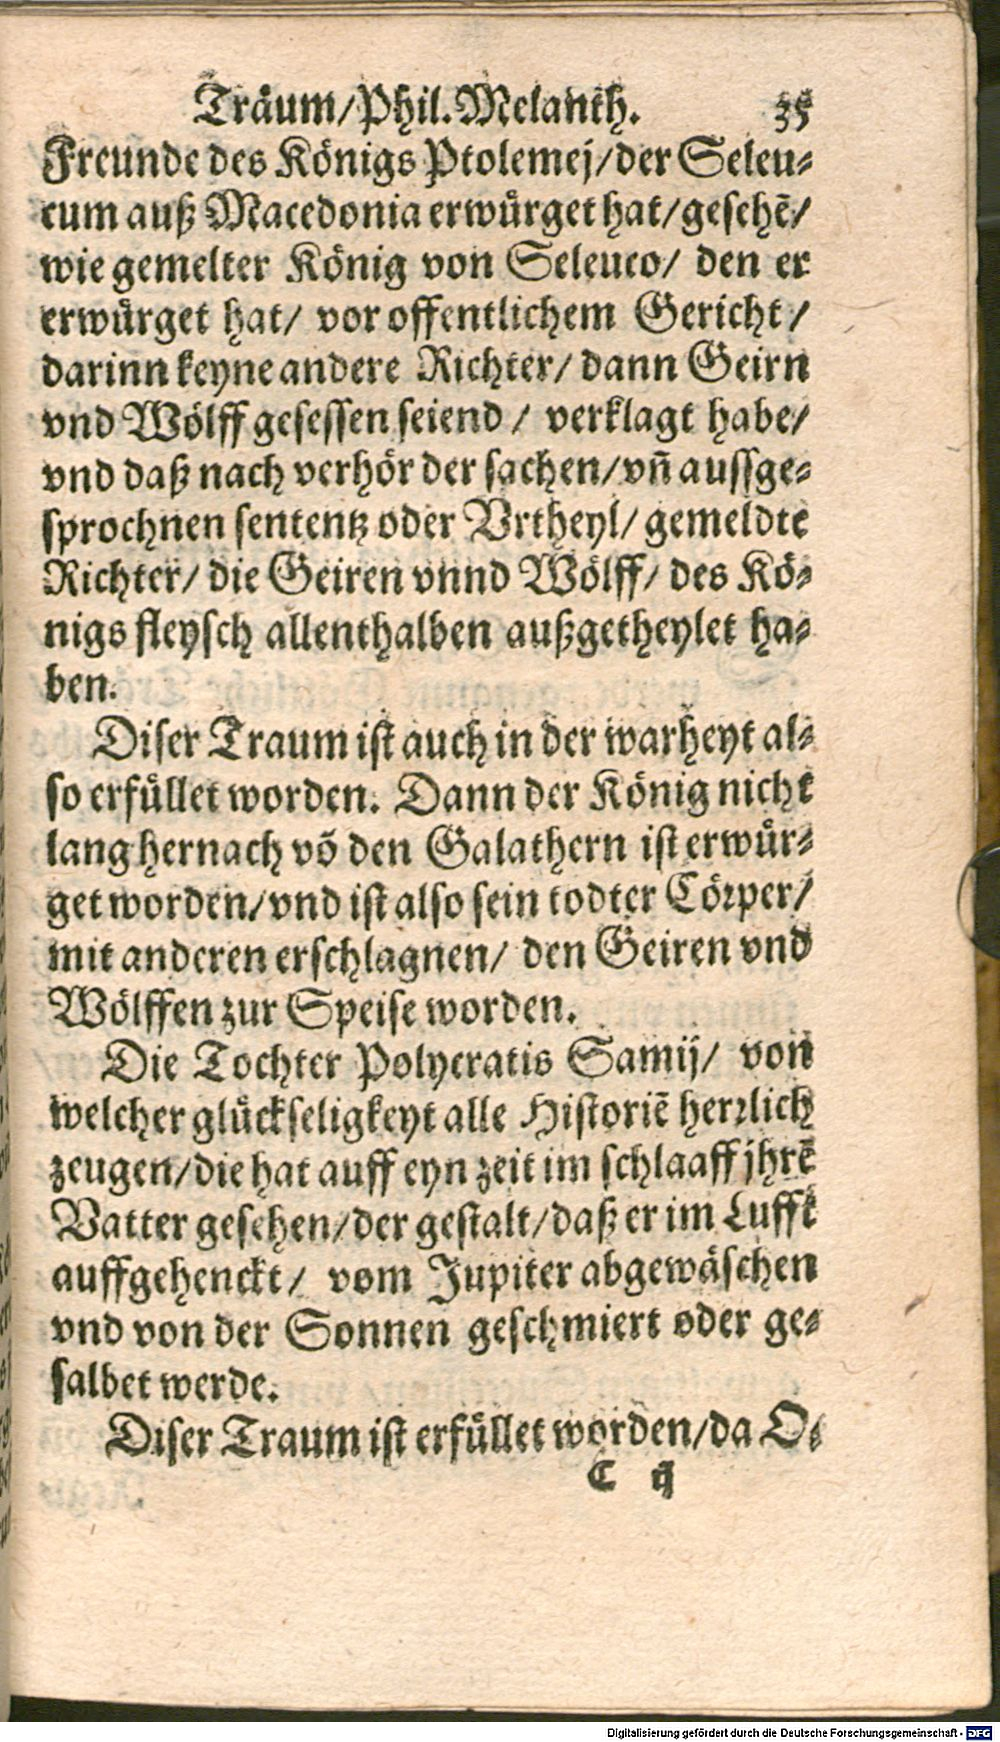 Träum/Phil. Melanth. 35
Freunde des Königs Ptolemej/der Seleu-
cum auß Macedonia erwürget hat/gesehē/
wie gemelter König von Seleuco/ den er
erwürget hat/ vor offentlichem Gericht/
darinn keyne andere Richter/ dann Geirn
vnd Wölff gesessen seiend / verklagt habe/
vnd daß nach verhör der sachen/vñ aussge-
sprochnen sententz oder Vrtheyl/ gemeldte
Richter/ die Geiren vnnd Wölff/ des Kö-
nigs fleysch allenthalben außgetheylet ha-
ben.
Diser Traum ist auch in der warheyt al-
so erfüllet worden. Dann der König nicht
lang hernach võ den Galathern ist erwür-
get worden/vnd ist also sein todter Cörper/
mit anderen erschlagnen/ den Geiren vnd
Wölffen zur Speise worden.
Die Tochter Polycratis Samij/ von
welcher glückseligkeyt alle Historiē herrlich
zeugen/die hat auff eyn zeit im schlaaff jhrē
Vatter gesehen/der gestalt/daß er im Lufft
auffgehenckt/ vom Jupiter abgewäschen
vnd von der Sonnen geschmiert oder ge-
salbet werde.
Diser Traum ist erfüllet worden/da O-
C ij
Digitalisierung gefördert durch die Deutsche Forschungsgemeinschaft - DFG